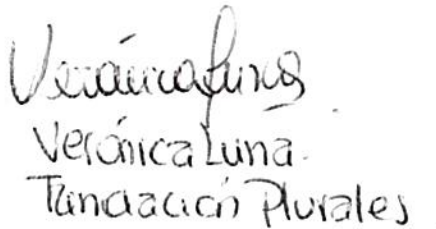 Verónica Luna
Verónica Luna.
Fundación Plurales